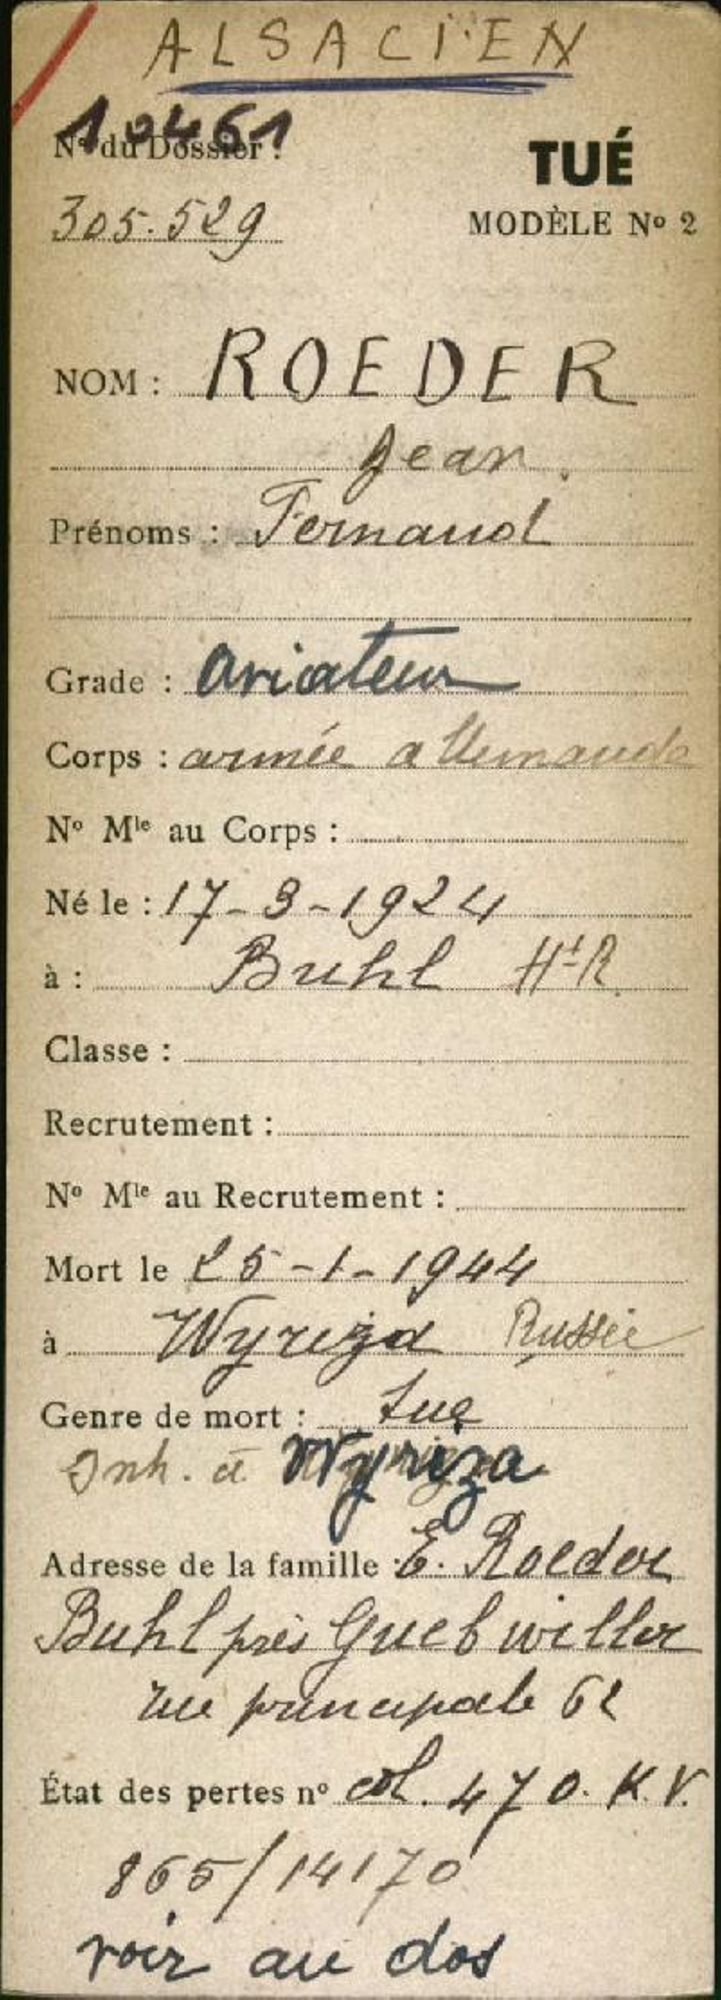 ALSACIEN
10461
N° du Dossier :
TUÉ
305.529
MODÈLE N° 2
NOM : ROEDER
Jean
Prénoms : Fernand
Grade : aviateur
Corps : armée allemande
N° Mle au Corps :
Né le : 17-3-1924
à : Buhl Ht-R
Classe :
Recrutement :
N° Mle au Recrutement :
Mort le 25-1-1944
à Wyriza Russie
Genre de mort : tué
Inh. à Wyriza
Adresse de la famille : E. Roeder
Buhl près Guebwiller
rue principale 62
État des pertes n° col. 470. K.V.
865/14170
voir au dos